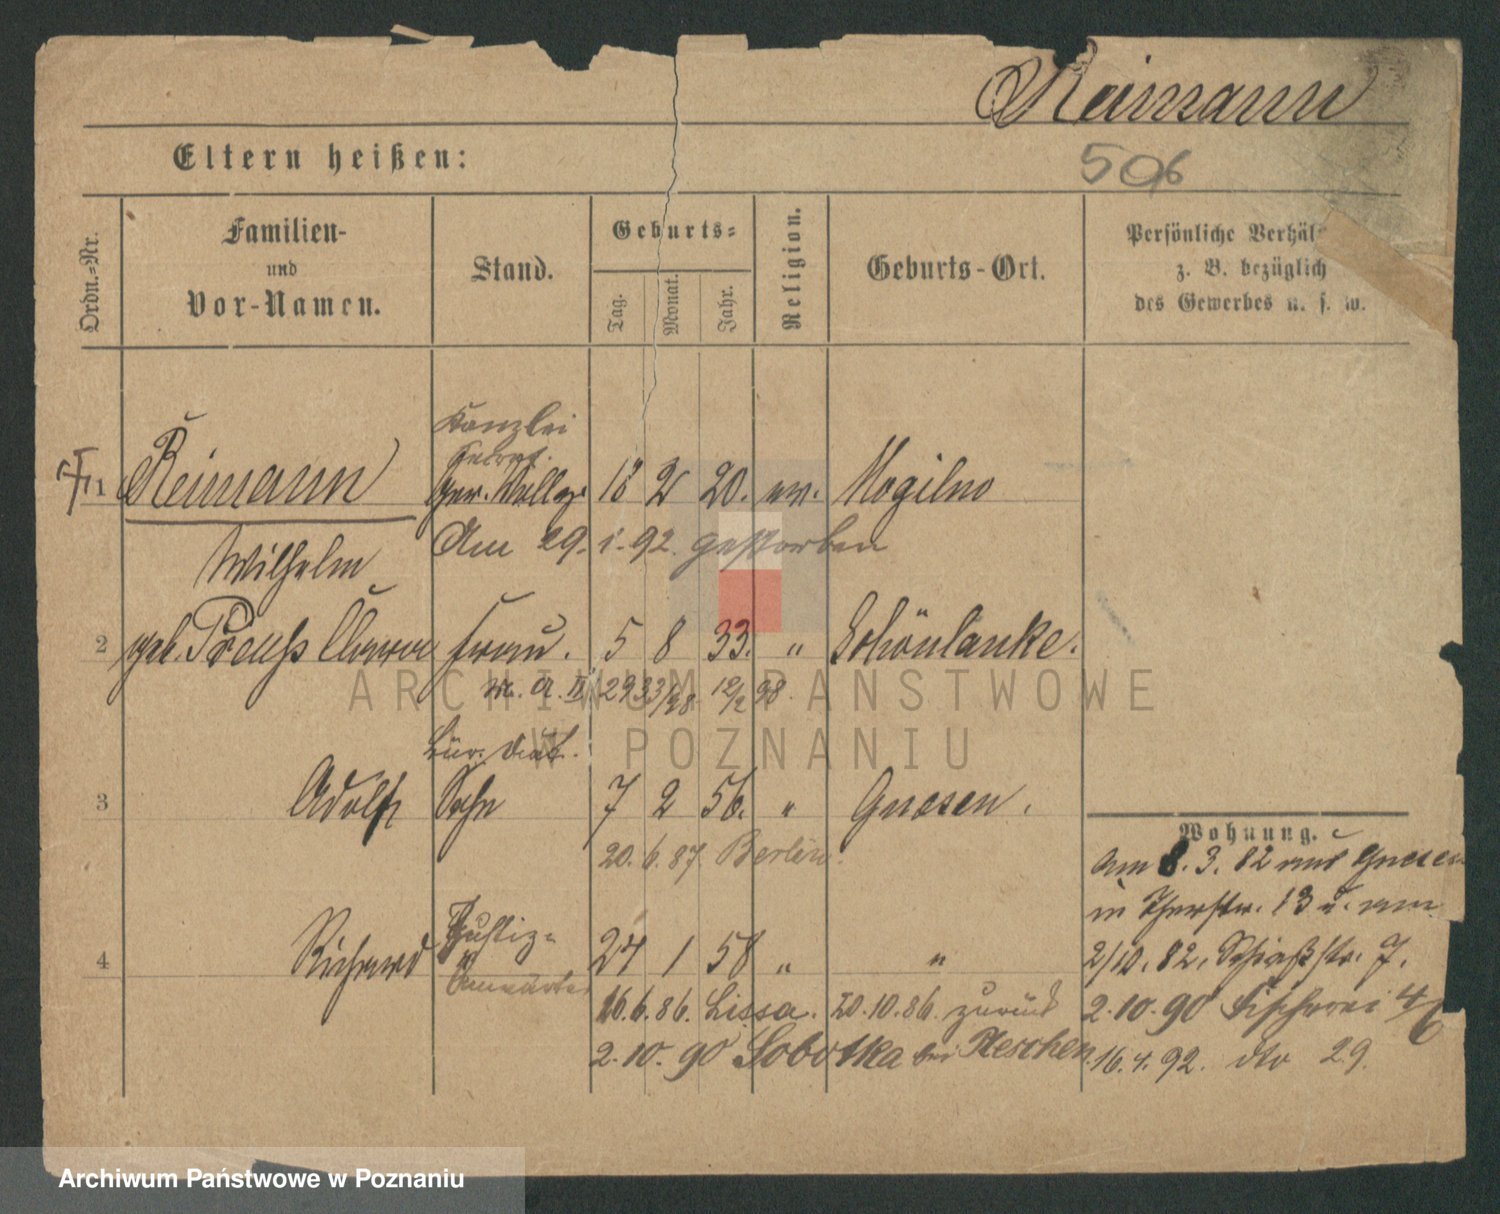 Reimann
506
Eltern heißen:
Ordn.=Nr.
Familien-
und
Vor-Namen.
Stand.
Geburts=
Tag.
Monat.
Jahr.
Religion.
Geburts-Ort.
Persönliche Verhäl
z. B. bezüglich
des Gewerbes u. s. w.
Kanzlei
1 Reimann 18 2 20. ev. Mogilno
Wilhelm Am 29. 1. 92. gestorben
2 geb. Preuß Clara Frau. 5 8 33. " Schönlanke.
12/2 98.
3 Adolf Sohn 7 2 56. " Gnesen.
20. 6. 87 Berlin.
4 Richard Justiz= 24 1 58 " "
Anwärter
16.6.86. Lissa. 20.10.86. zurück
2.10.90 Sobotka bei Pleschen.
Wohnung.
Am 8.3.82 aus Gnesen
in Thorstr. 13 u. am
2/10.82. Schießstr. 7.
2.10.90 Fischerei 4/6
16.4.92. dto 29.
ARCHIWUM PAŃSTWOWE
W POZNANIU
Archiwum Państwowe w Poznaniu